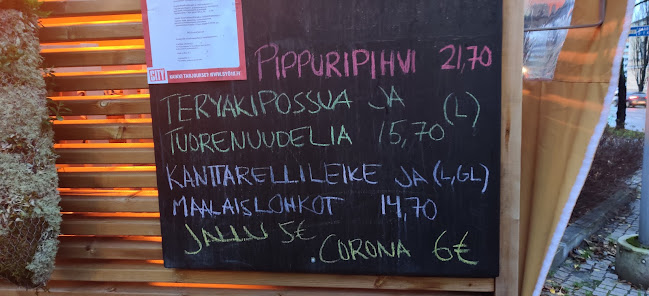 PIPPURIPIHVI 21,70
TERYAKIPOSSUA JA (L)
TUORENUUDELIA 15,70
KANTTARELLILEIKE JA (L,GL)
MAALAISLOHKOT 14,70
JALLU 5€
CORONA 6€